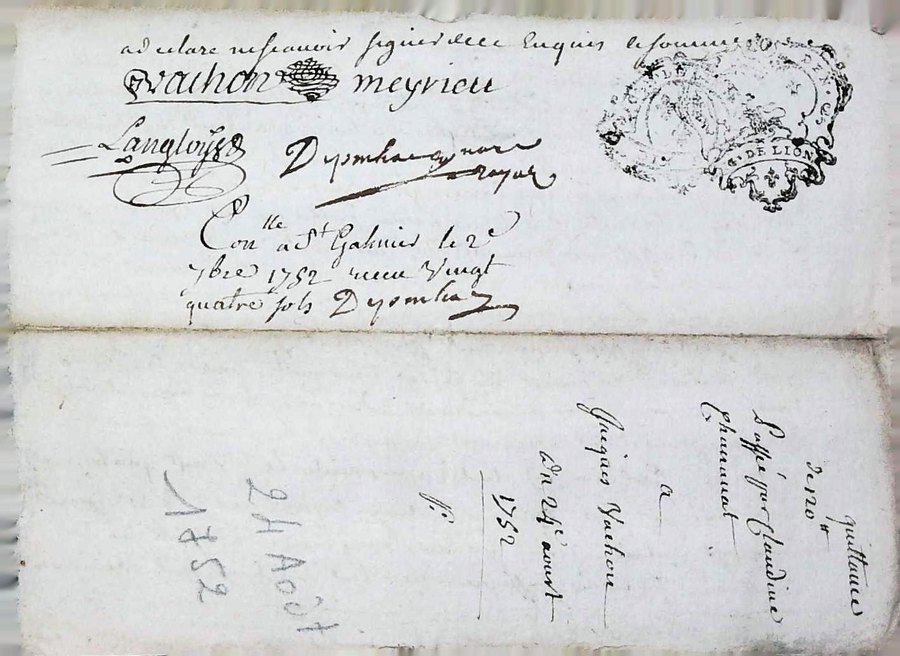 a declaré ne scavoir signer de ce Enquis et sommé
Vachon meyrieu
Langloys
Deponhac nore
royal
Conlle a St Galmier le 2e
7bre 1752 receu Vingt
quatre sols
G. DE LION
quittance
de 120 tt
passé par Claudine
Chammat
a
Jacques Vachon
du 24e aoust
1752
24 Août
1752